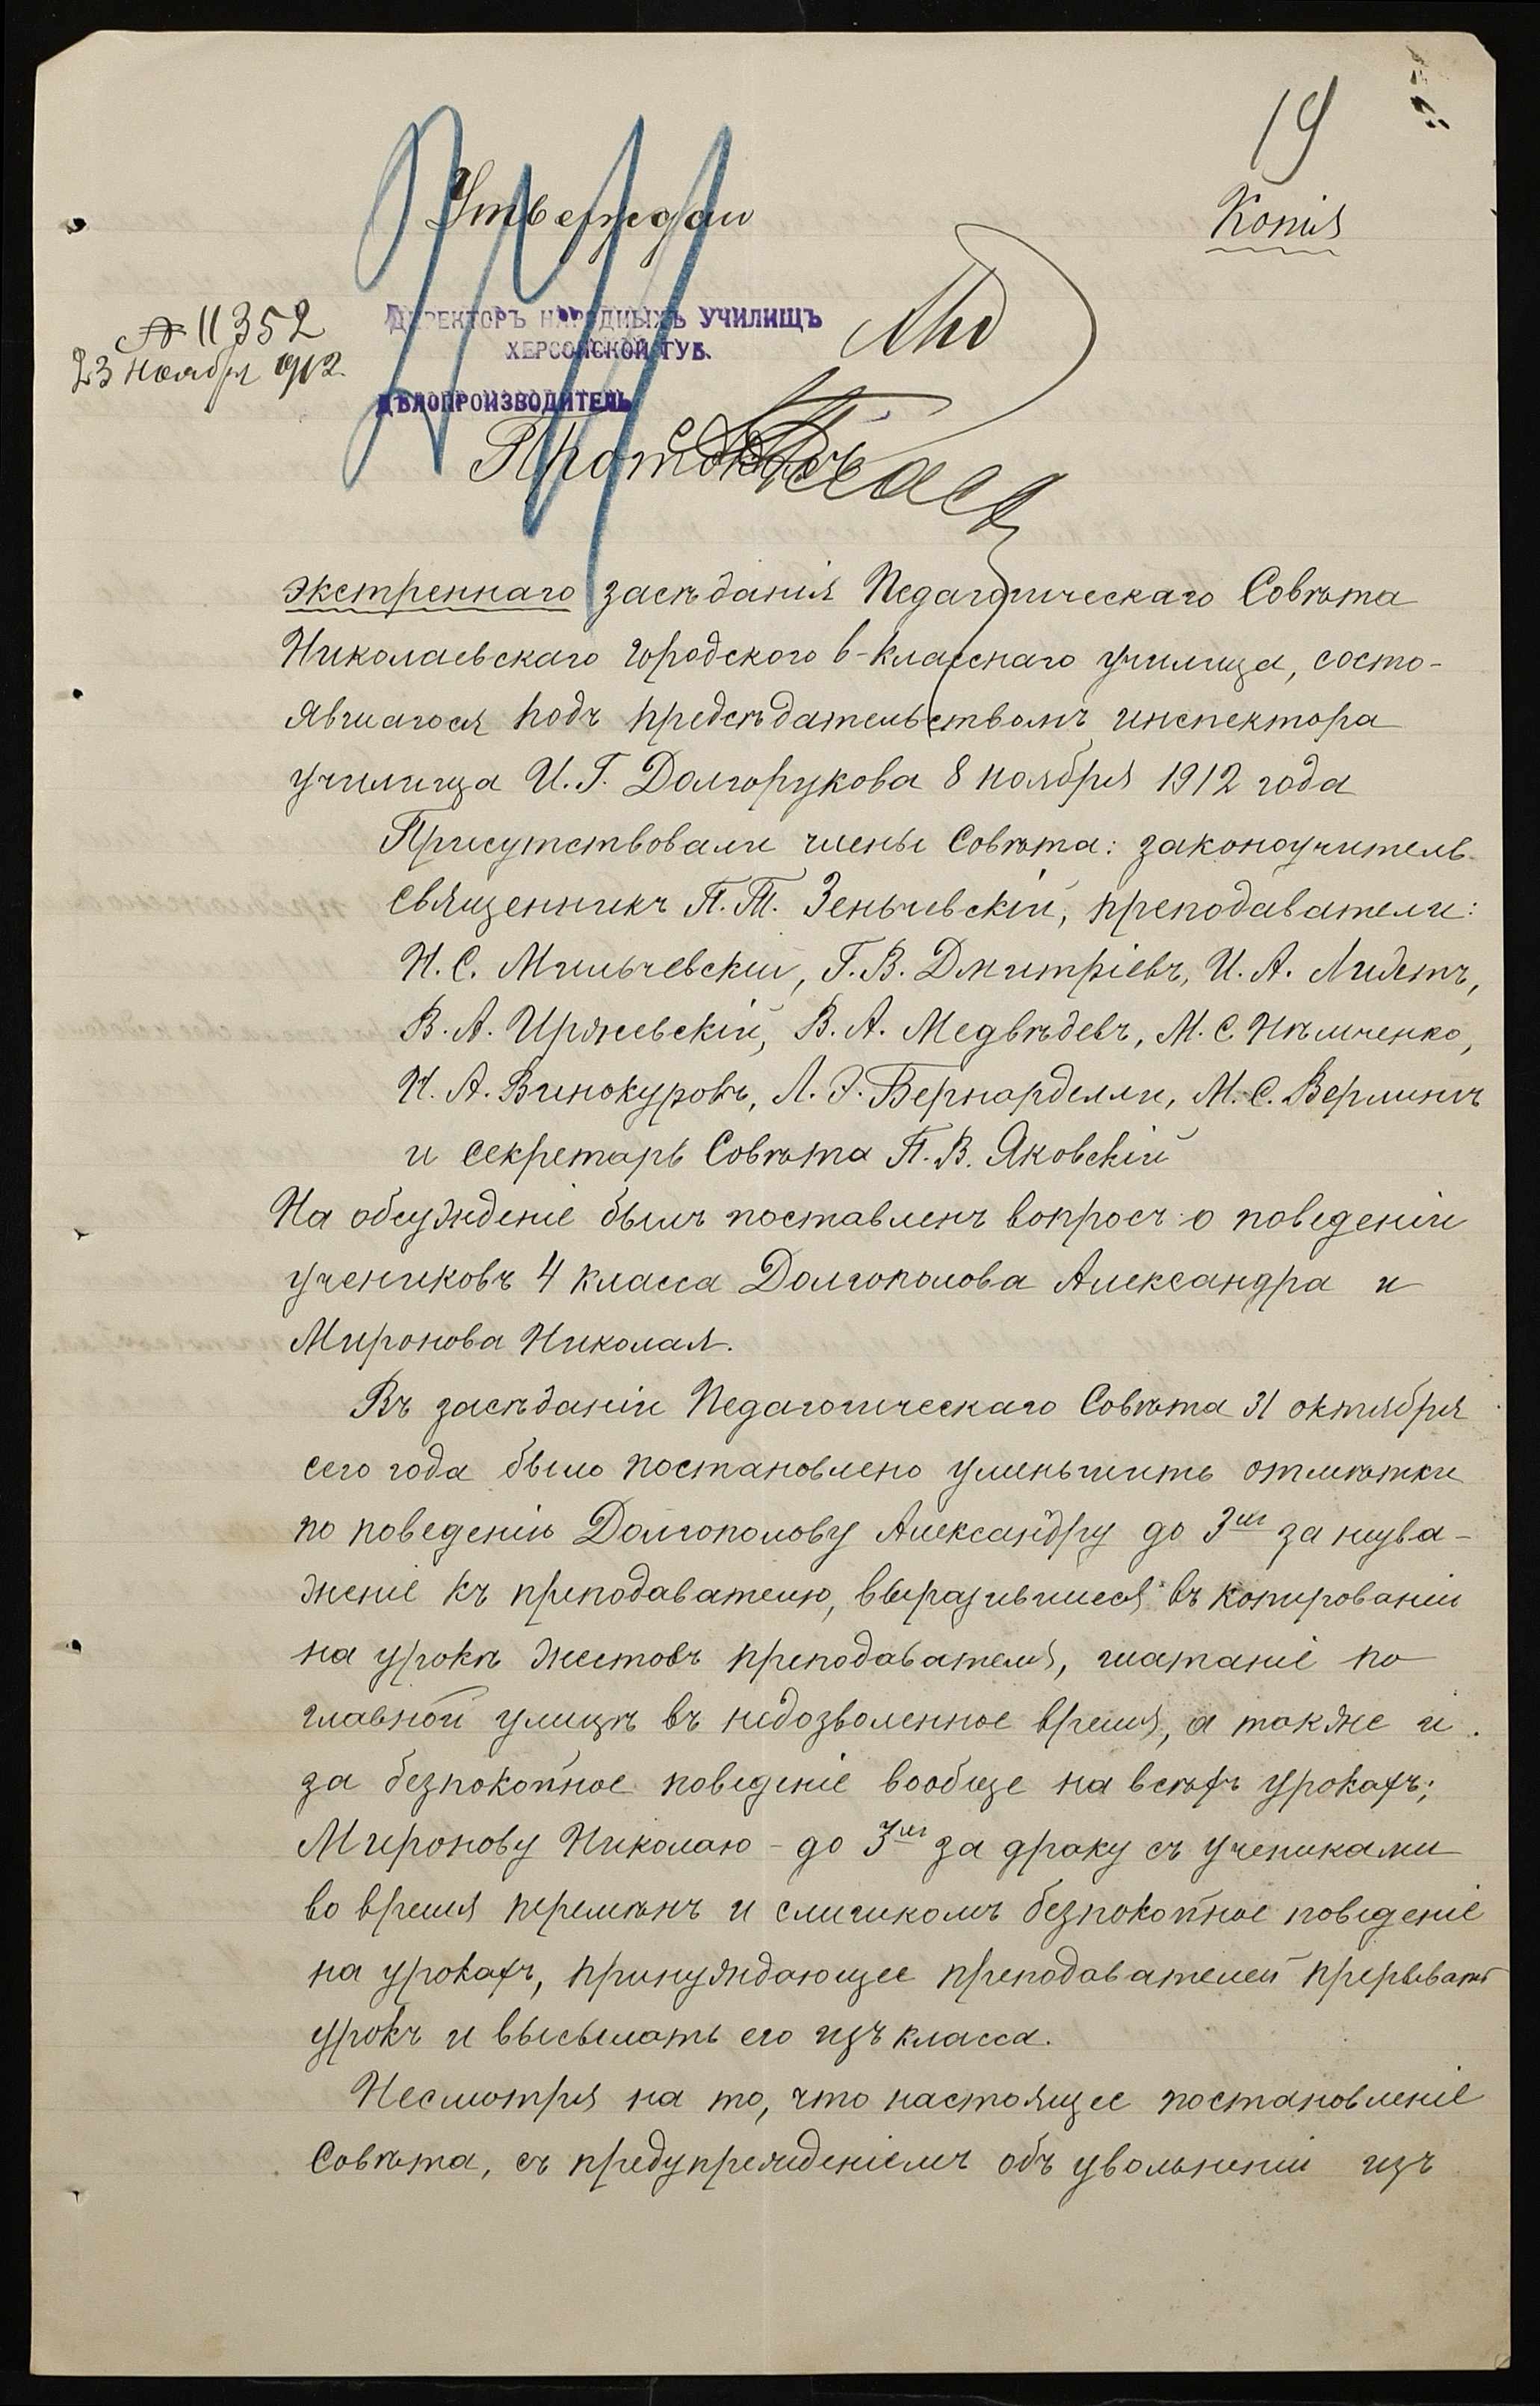 19
Копія
Утверждаю
№ 11352
23 Ноября 1912.
ДИРЕКТОРЪ НАРОДНЫХЪ УЧИЛИЩЪ
ХЕРСОНСКОЙ ГУБ.
ДѢЛОПРОИЗВОДИТЕЛЬ
Протоколъ
экстреннаго засѣданія Педагогическаго Совѣта
Николаевскаго городского 6-класснаго училища, состо-
явшагося подъ предсѣдательствомъ инспектора
училища И. Г. Долгорукова 8 ноября 1912 года
Присутствовали члены Совѣта: законоучитель
священникъ П. Т. Зеньчевскій, преподаватели:
Н. С. Мильчевскій, Г. В. Дмитріевъ, И. А. Лидетъ,
В. А. Иржевскій, В. А. Медвѣдевъ, М. С. Нѣмченко,
Н. А. Винокуровъ, Л. Э. Бернарделли, М. С. Верлинъ
и секретарь Совѣта П. В. Яковскій
На обсужденіе былъ поставленъ вопросъ о поведеніи
учениковъ 4 класса Долгополова Александра и
Миронова Николая.
Въ засѣданіи Педагогическаго Совѣта 31 октября
сего года было постановлено уменьшить отмѣтки
по поведенію Долгополову Александру до 3хъ за неува-
женіе къ преподавателю, выразившееся въ копированіи
на урокѣ жестовъ преподавателя, шатаніе по
главной улицѣ въ недозволенное время, а также и
за безпокойное поведеніе вообще на всѣхъ урокахъ;
Миронову Николаю - до 3хъ за драку съ учениками
во время перемѣнъ и слишкомъ безпокойное поведеніе
на урокахъ, принуждающее преподавателей прерывать
урокъ и высылать его изъ класса.
Несмотря на то, что настоящее постановленіе
Совѣта, съ предупрежденіемъ объ увольненіи изъ